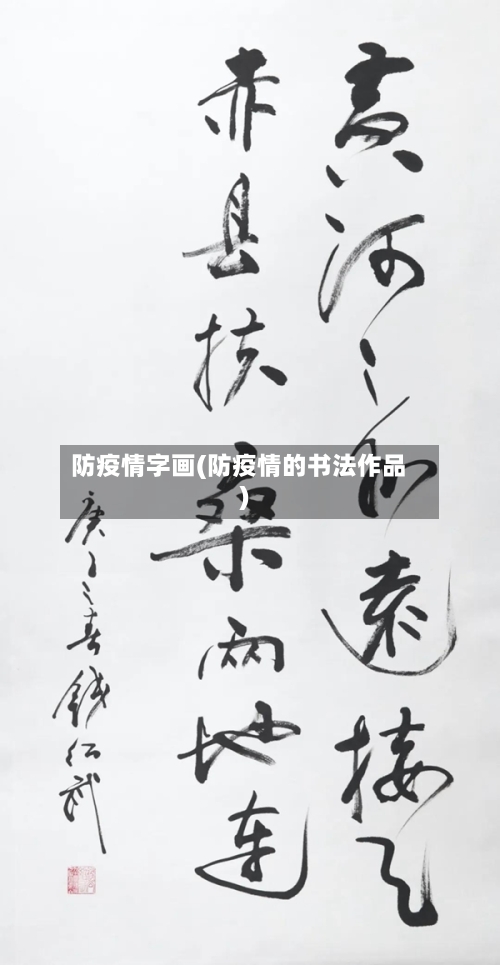 黄河之遠接天
赤县扶桑两地連
庚子之春錢紹武
防疫情字画(防疫情的书法作品
)